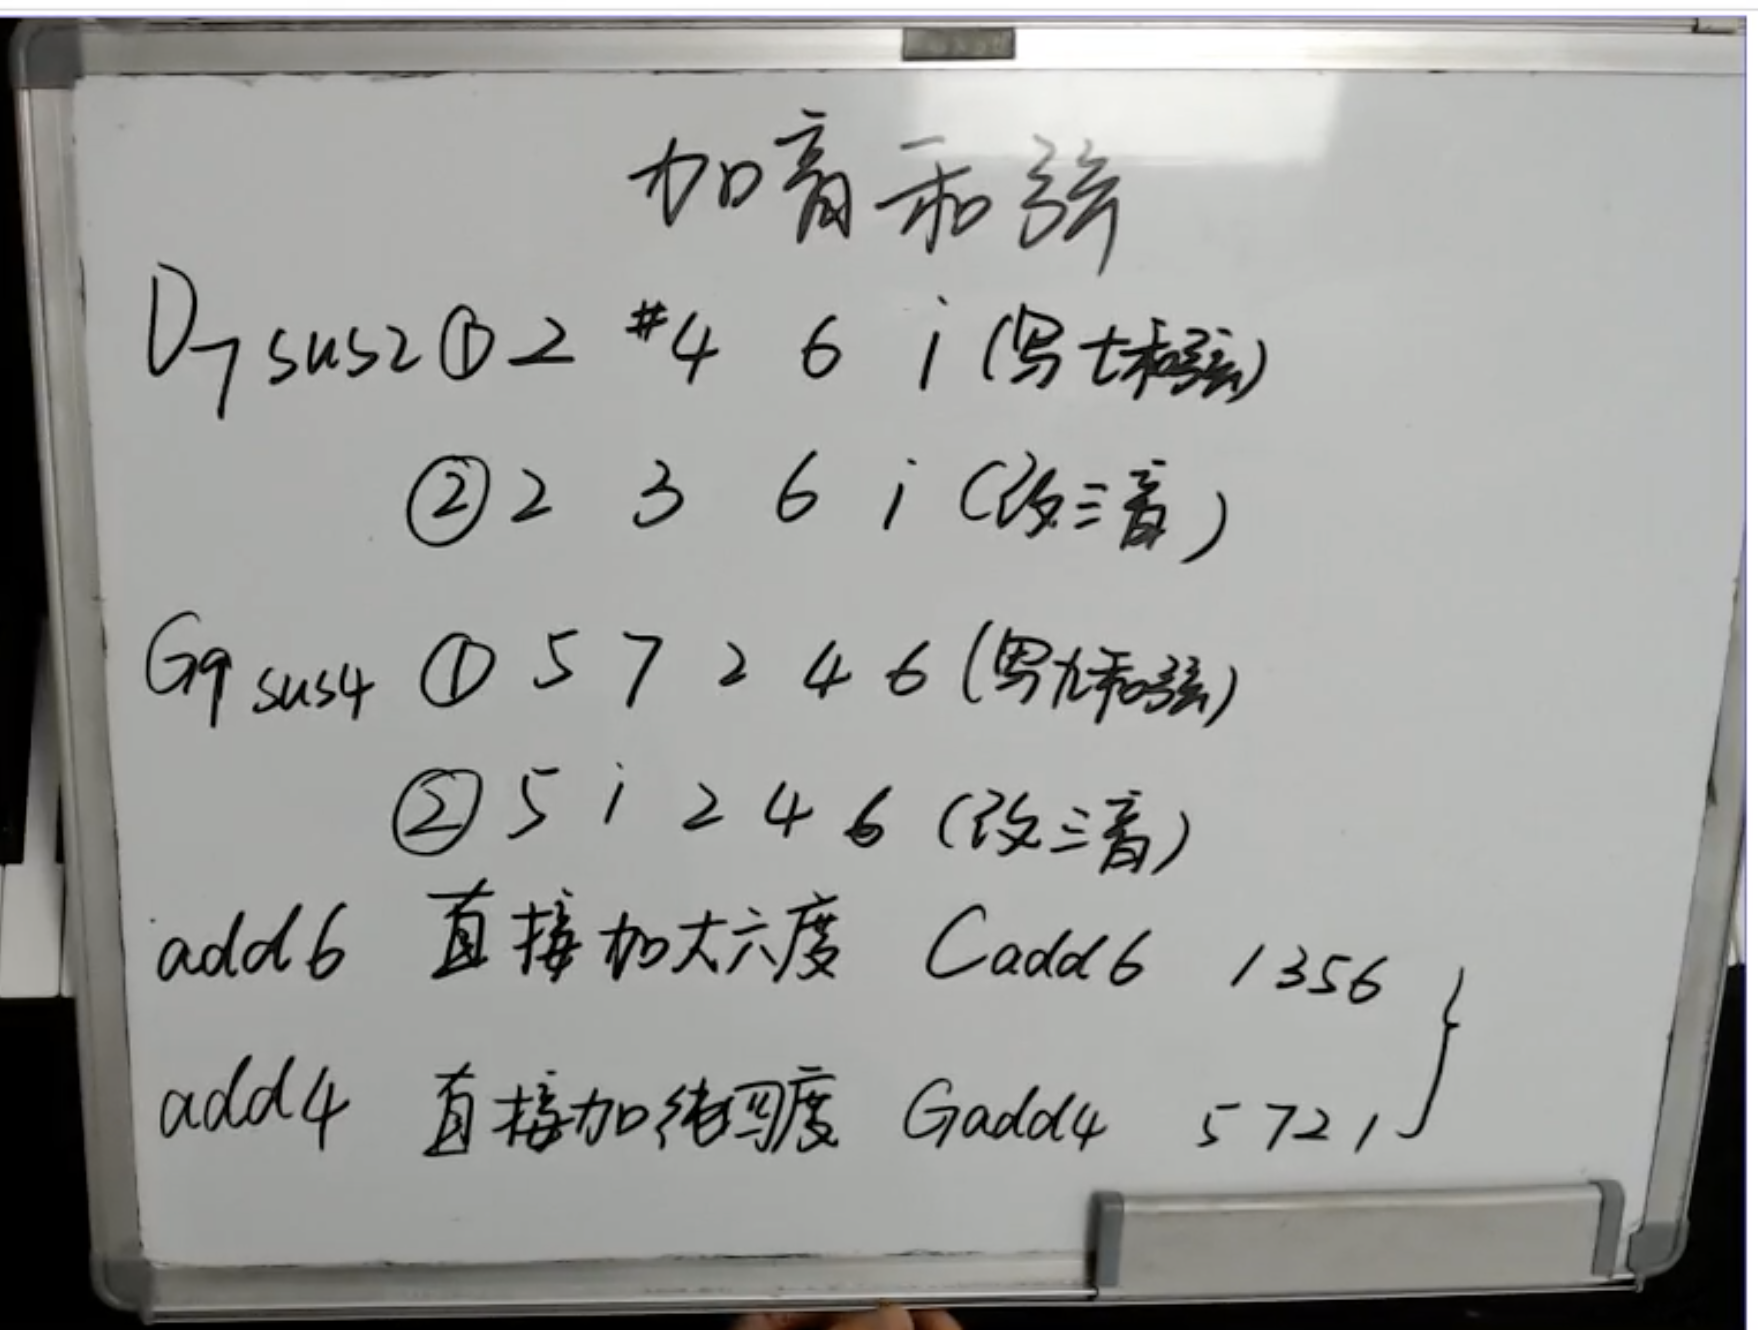 加音和弦
D7sus2 ① 2 #4 6 i (写七和弦)
② 2 3 6 i (改三音)
G9sus4 ① 5 7 2 4 6 (写九和弦)
② 5 i 2 4 6 (改三音)
add6 直接加大六度 Cadd6 1356
add4 直接加纯四度 Gadd4 5721